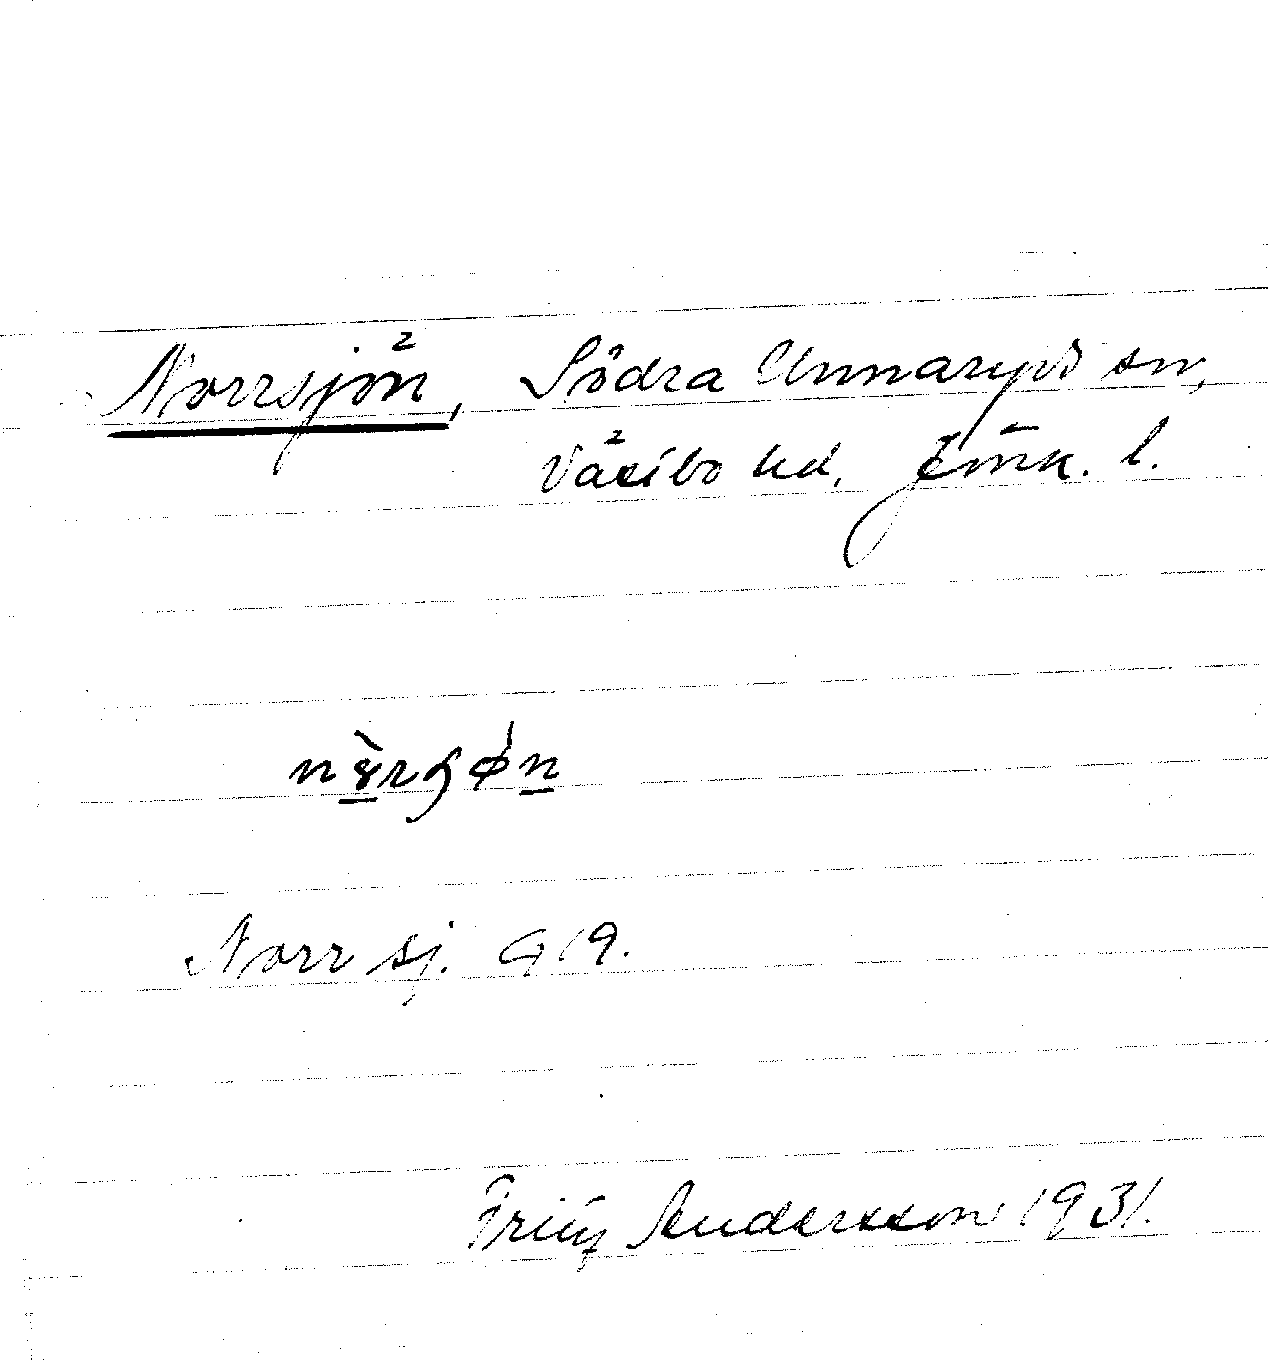 Norrsjön, Södra Unnaryds sn,
Västbo hd, Jönk. l.
Norr sj. G 19.
Fritz Andersson 1931.